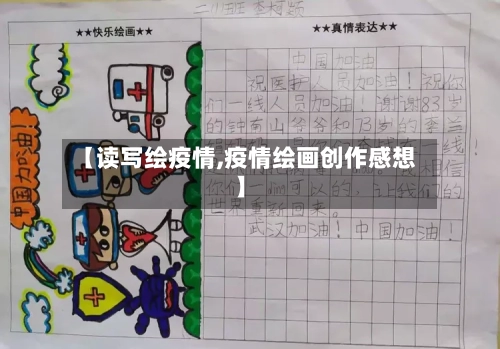 二小班 李柯颖
★★快乐绘画★★
★★真情表达★★
中国加油!
中国加油
祝医护人员加油!祝你
们一线人员加油!谢谢83岁
的钟南山爷爷和73岁的李兰
【读写绘疫情,疫情绘画创作感想
】
相信
你们一定可以的,让我们的
世界重新回来。
武汉加油!中国加油!